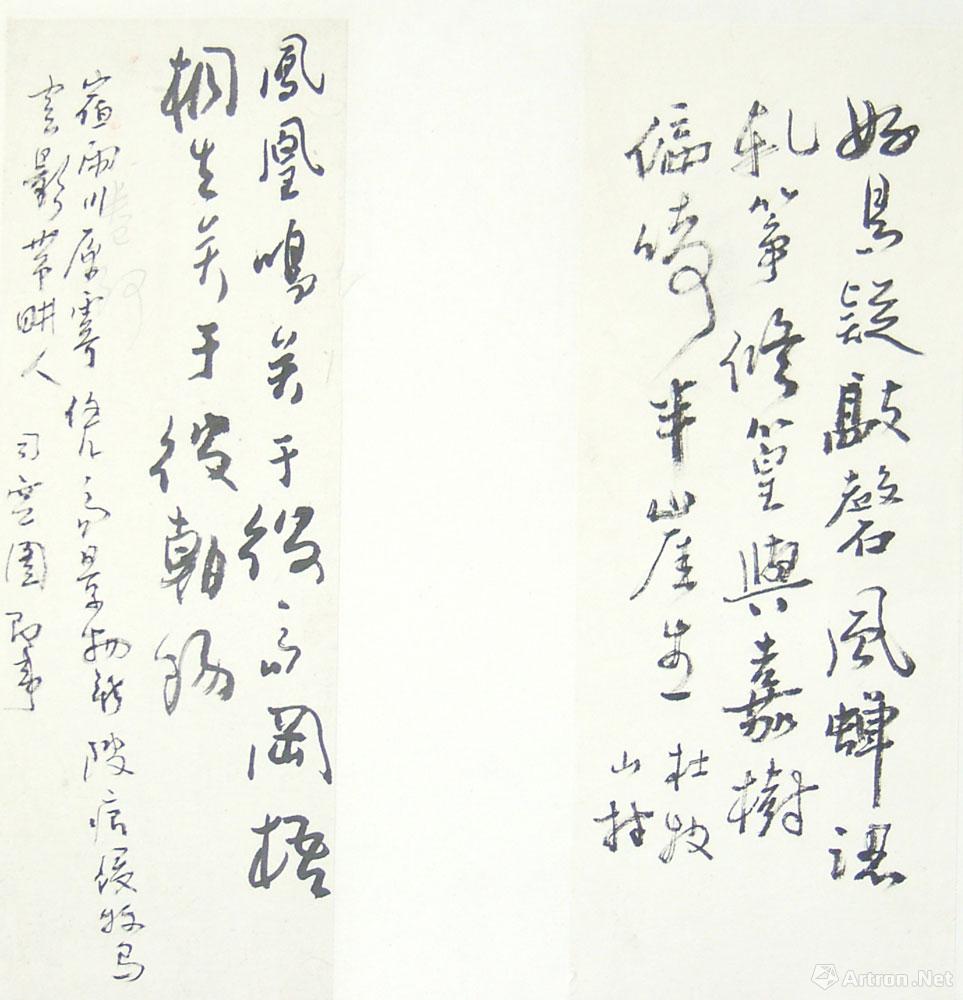 好鳥疑敲磬風蟬認
軋箏修篁與嘉樹
偏倚半崖生
杜牧
山
鳳凰鳴矣于彼高岡梧
桐生矣于彼朝陽
宿雨川原霽凭高景物新陂痕侵牧馬
雲影帶耕人 司空圖即事
Artron.Net